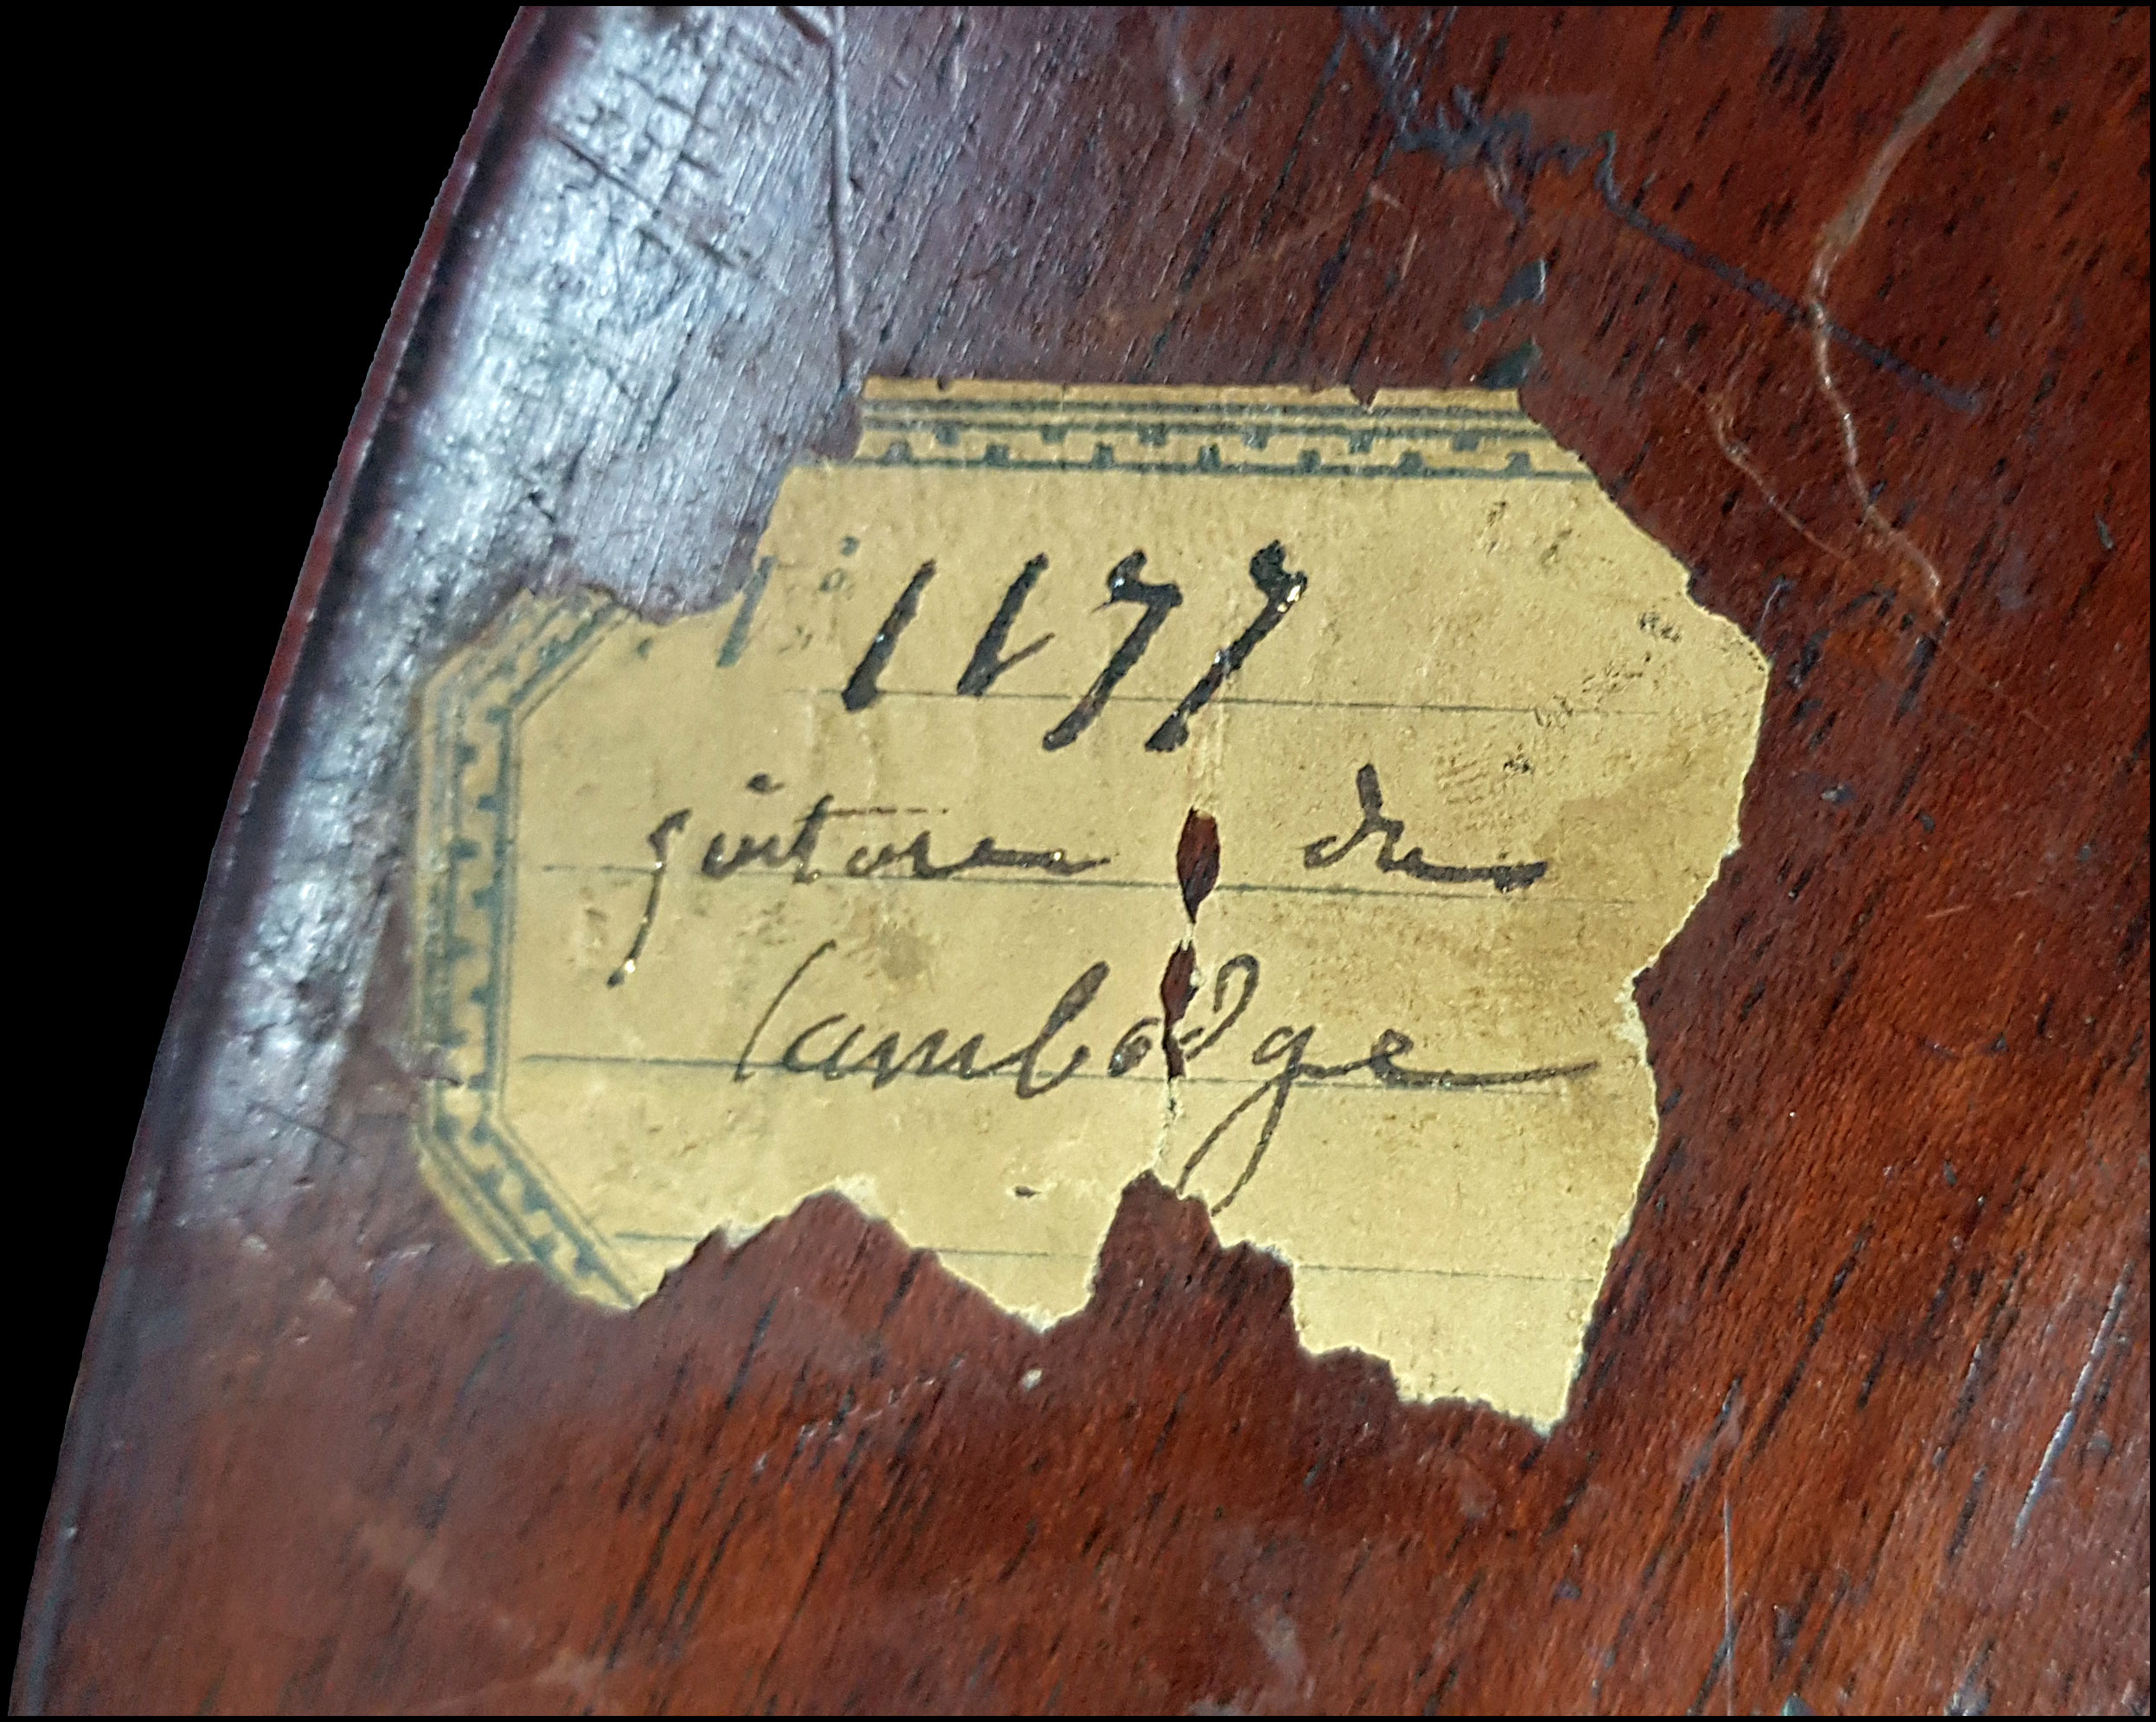 N° 1177
guitare du
Cambodge